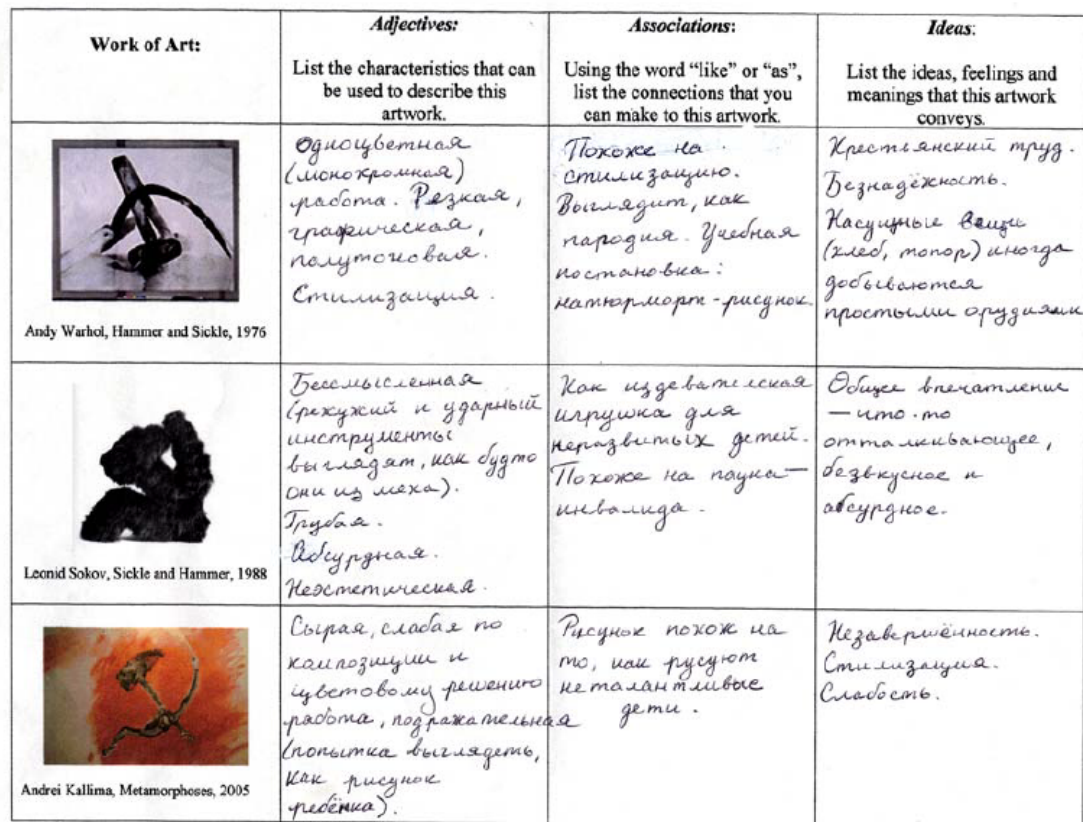 Work of Art:
Adjectives:
List the characteristics that can
be used to describe this
artwork.
Associations:
Using the word “like” or “as”,
list the connections that you
can make to this artwork.
Ideas:
List the ideas, feelings and
meanings that this artwork
conveys.
Andy Warhol, Hammer and Sickle, 1976
Одноцветная
(монохромная)
работа. Резкая,
графическая,
полутоновая.
Стилизация.
Похоже на
стилизацию.
Выглядит, как
пародия. Учебная
постановка:
натюрморт-рисунок.
Крестьянский труд.
Безнадёжность.
Насущные вещи
(хлеб, топор) иногда
добываются
простыми орудиями
Leonid Sokov, Sickle and Hammer, 1988
Бессмысленная
(режужий и ударный
инструменты
выглядят, как будто
они из меха).
Грубая.
Абсурдная.
Неэстетическая.
Как издевателская
игрушка для
неразвитых детей.
Похоже на паука—
инвалида.
Общее впечатление
— что-то
отталкивающее,
безвкусное и
абсурдное.
Andrei Kallima, Metamorphoses, 2005
Сырая, слабая по
композиции и
цветовому решению
работа, подражательная
(попытка выглядеть,
как рисунок
ребёнка).
Рисунок похож на
то, как русуют
неталантливые
дети.
Незавершённость.
Стилизация.
Слабость.